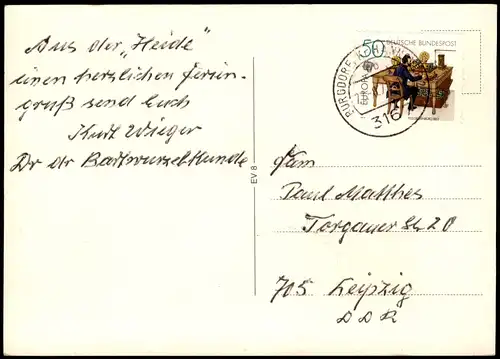 Aus der „Heide"
einen herzlichen Ferien-
gruß send Euch
Kurt Wieger
Dr der Bartwurzelkunde
EV 8
50
DEUTSCHE BUNDESPOST
EUROPA
BURGDORF
316
Fam
Paul Matthes
Torgauer Str 20
705 Leipzig
DDR